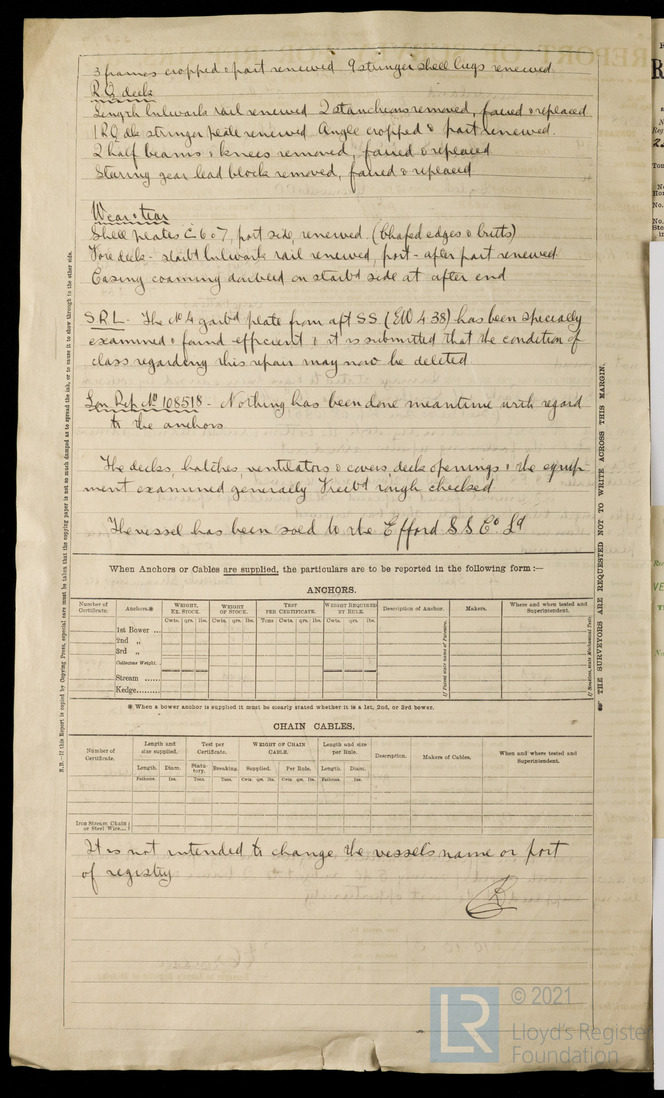 3 frames cropped & part renewed 9 stringer shell lugs renewed
R.Q. deck
Length bulwark rail renewed 2 stanchions removed, faired & replaced
1 RQ dk stringer plate renewed Angle cropped & part renewed.
2 half beams & knees removed, faired & replaced
Steering gear lead blocks removed, faired & replaced
Wear & tear
Shell plates C 6 & 7, port side, renewed (Chafed edges & butts)
Fore deck - starbd bulwark rail renewed, port - after part renewed
Casing coaming doubled on starbd side at after end
S.R.L - The No 4 garbd plate from aft SS. (EW 4 38) has been specially
examined & found efficient & it is submitted that the condition of
class regarding this repair may now be deleted
Lon Rep No 108518 - Nothing has been done meantime with regard
to the anchors
The decks, hatches, ventilators & covers, deck openings & the equip-
ment examined generally Freebd rough checked
The vessel has been sold to the Efford S S Co Ld
When Anchors or Cables are supplied, the particulars are to be reported in the following form :—
ANCHORS.
Number of Certificate. Anchors.* WEIGHT, EX. STOCK. WEIGHT OF STOCK. TEST PER CERTIFICATE. WEIGHT REQUIRED BY RULE. Description of Anchor. Makers. Where and when tested and Superintendent.
Cwts. qrs. lbs. Cwts. qrs. lbs. Tons Cwts. qrs. lbs. Cwts. qrs. lbs.
1st Bower ...
2nd „
3rd „
Collective Weight.
Stream ......
Kedge.........
* When a bower anchor is supplied it must be clearly stated whether it is a 1st, 2nd, or 3rd bower.
CHAIN CABLES.
Number of Certificate. Length and size supplied. Test per Certificate. WEIGHT OF CHAIN CABLE. Length and size per Rule. Description. Makers of Cables. When and where tested and Superintendent.
Length. Diam. Statutory. Breaking. Supplied. Per Rule. Length. Diam.
Fathoms. Ins. Tons. Tons. Cwts. qrs. lbs. Cwts. qrs. lbs. Fathoms. Ins.
Iron Stream Chain
or Steel Wire...
It is not intended to change the vessel's name or port
of registry
N.B.—If this Report is copied by Copying Press, especial care must be taken that the copying paper is not so much damped as to spread the ink, or to cause it to show through to the other side.
THE SURVEYORS ARE REQUESTED NOT TO WRITE ACROSS THIS MARGIN.
LR
© 2021
Lloyd's Register
Foundation